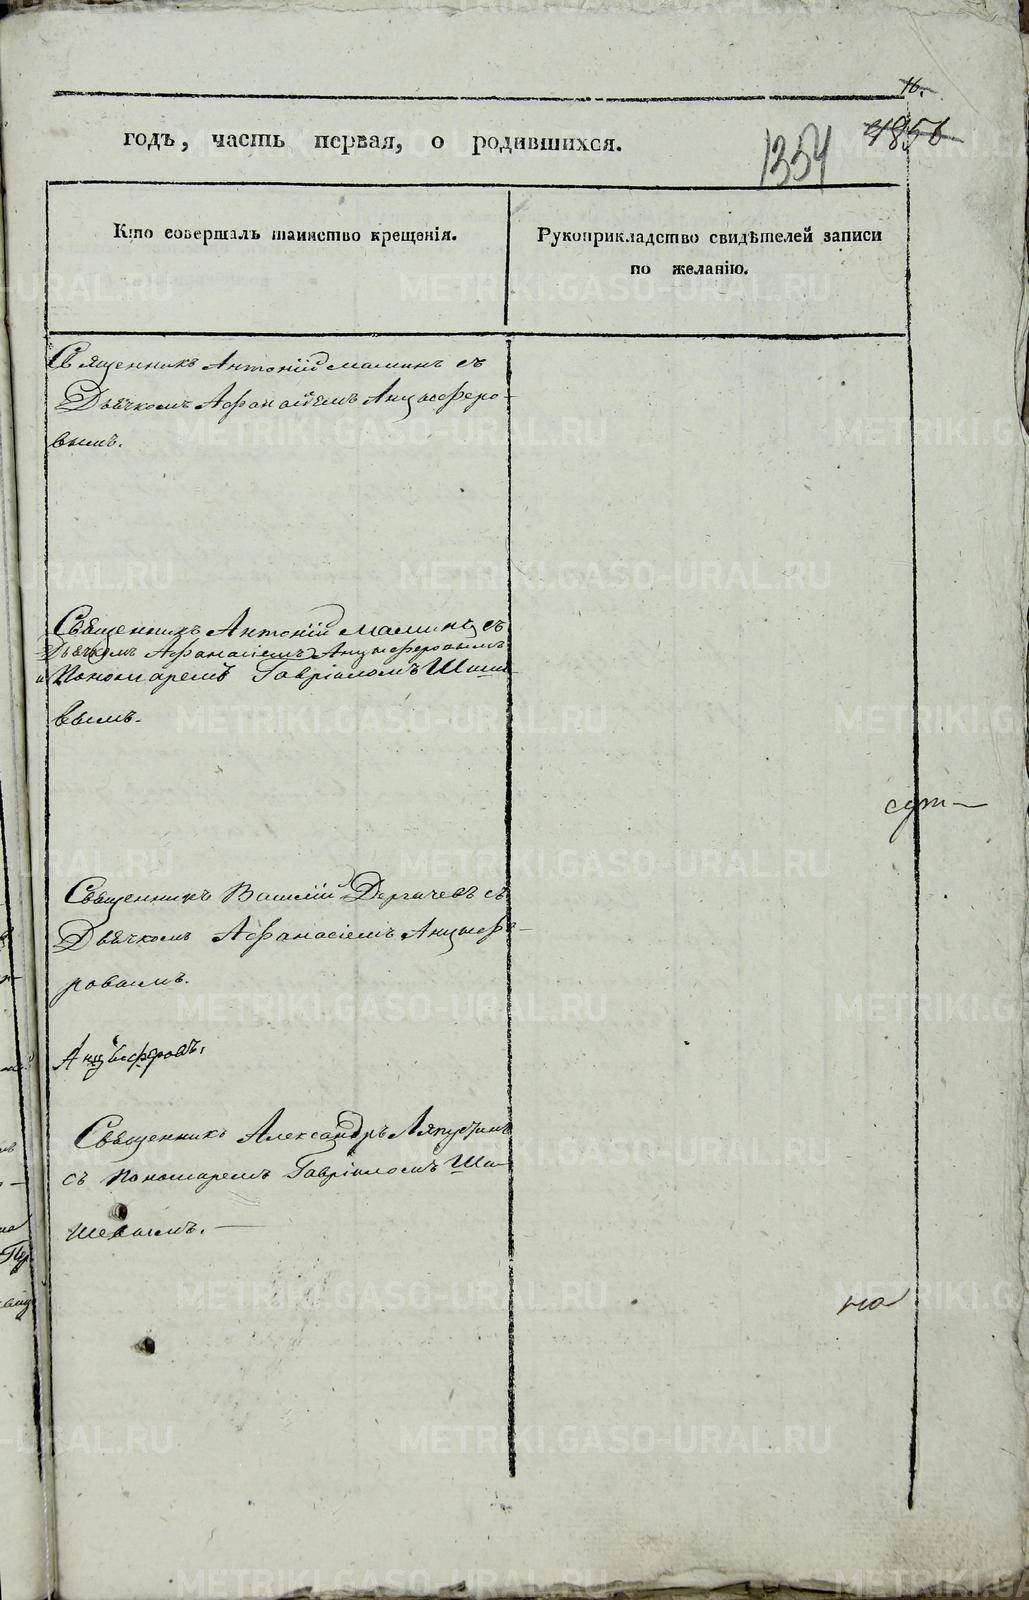 16.
годъ, часть первая, о родившихся.
1354
Кто совершалъ таинство крещенія.
Рукоприкладство свидѣтелей записи
по желанію.
Священникъ Антоній Малминъ съ
Дьячкомъ Афанасіемъ Анцыферо-
вымъ.
Священникъ Антоній Малминъ съ
Дьячкомъ Афанасіемъ Анцыферовымъ
и Пономаремъ Гавріиломъ
вымъ.
Священникъ Василій Дергачевъ съ
Дьячкомъ Афанасіемъ Анцыфе-
ровымъ.
Анцыферовъ.
Священникъ Александръ Ляпустинъ
съ Пономаремъ Гавріиломъ Ши-
шевымъ.
на
METRIKI.GASO-URAL.RU